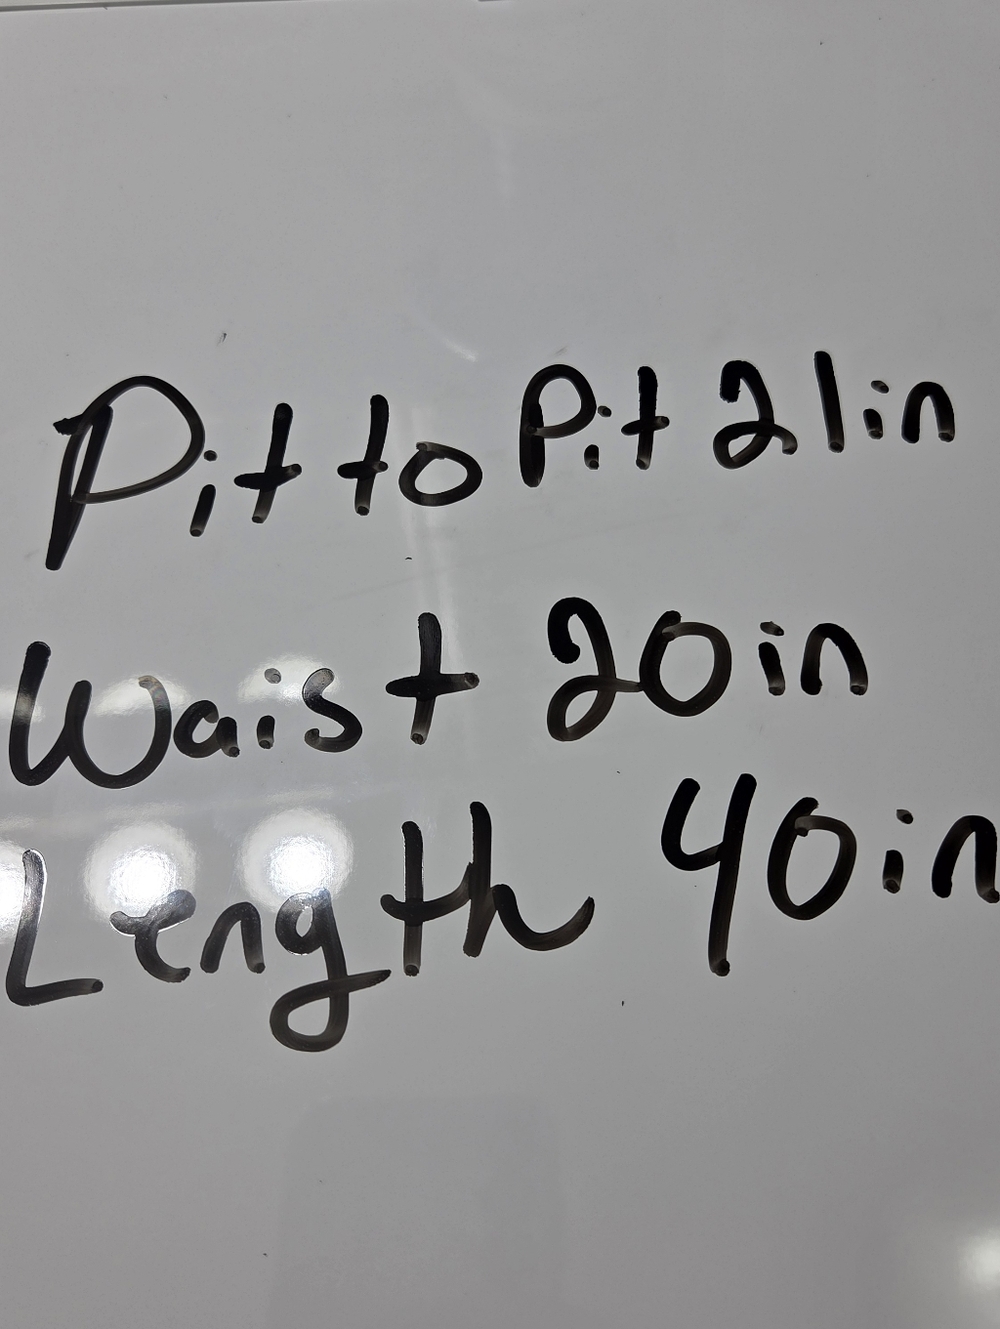 Pit to Pit 21in
Waist 20in
Length 40in